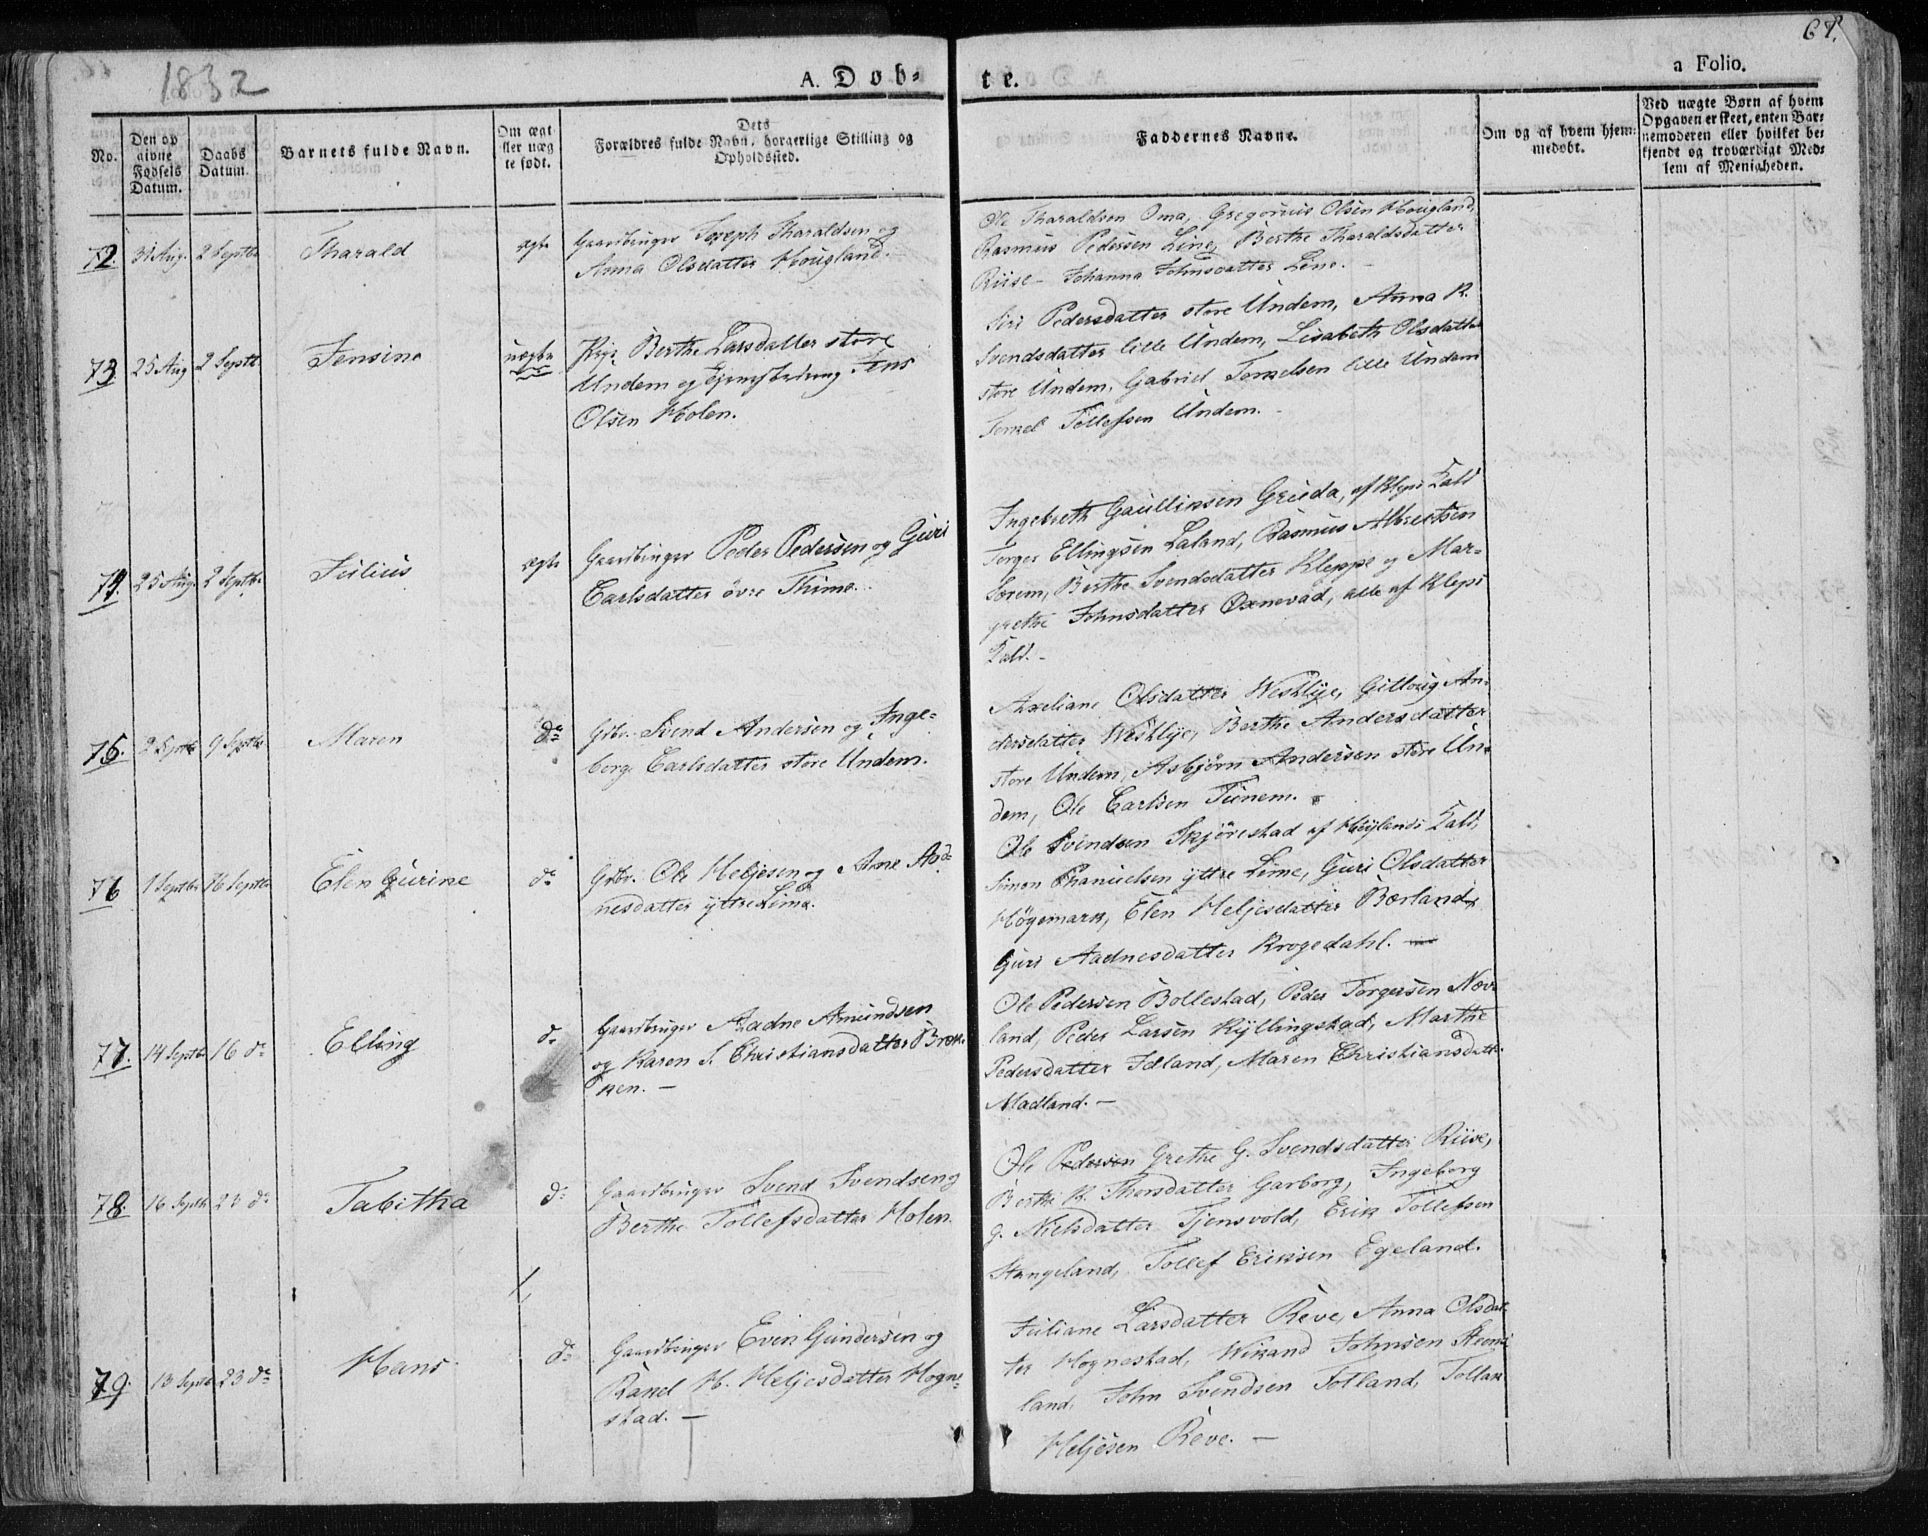 1832
A. Døb-
te.
67.
a Folio.
No.
Den opgivne Fødsels Datum.
Daabs Datum.
Barnets fulde Navn.
Om ægte eller uægte født.
Dets
Forældres fulde Navn, borgerlige Stilling og
Opholdssted.
Faddernes Navne.
Om og af hvem hjem-
medøbt.
Ved uægte Børn af hvem
Opgaven er skeet, enten Bar-
nemoderen eller hvilket be-
kjendt og troværdigt Med-
lem af Menigheden.
72. 31 Aug. 2 Septbr Tharald ægte Gaardbruger Joseph Tharaldsen og
Anna Olsdatter Hougland.
Ole Tharaldsen Oma, Gregorius Olsen Hougland,
Rasmus Pedersen Line, Berthe Tharaldsdatter
Riise - Johanna Johnsdatter Line. -
73 25 Aug 2 Septb Jensine uægte Pige Berthe Larsdatter store
Undem og Jens
Olsen Holen.
Siri Pedersdatter store Undem, Anna K.
Svendsdatter lille Undem, Lisabeth Olsdatter
store Undem, Gabriel Torkelsen lille Undem
Torkel Tollefsen Undem. -
74. 25 Aug. 2 Septbr Julius ægte Gaardbruger Peder Pedersen og Guri
Carlsdatter övre Thime.
Ingebreth Gaullinsen Gruda, af Kleps Kald
Torger Ellingsen Laland, Rasmus Albrectsen
Sørem, Berthe Svendsdatter Kleppe og Mar-
grethe Johnsdatter Oxnevad, alle af Kleps
Kald. -
75. 2 Septb 9 Septbr Maren do Gbr. Svend Andersen og Inge-
borg Carlsdatter store Undem.
Axeliane Olsdatter Westlye, Gitlaug An-
dersdatter Westlye, Berthe Andersdatter
store Undem, Asbjørn Andersen store Un-
dem, Ole Carlsen Tunem.
76 1 Septbr 16 Septbr Elen Gurine do Gdbr. Ole Heljesen og Anne Aad-
nesdatter yttre Lima.
Ole Svindsen Skjørestad af Høylands Kald,
Simon Phanuelsen yttre Lime, Guri Olsdatter
Høgemark, Elen Heljesdatter Bærland,
Guri Aadnesdatter Krogedahl.
77. 14 Septbr 16 do Elling do Gaardbruger Aadne Amundsen
og Karen S. Christiansdatter Bræk-
ken. -
Ole Pedersen Bollestad, Peder Torgersen Næv-
land, Peder Larsen Kyllingstad, Marthe
Pedersdatter Idland, Maren Christiansdatt.
Madland. -
78. 16 Septb 23 do Tabitha do Gaardbruger Svend Svendsen og
Berthe Tollefsdatter Holen.
Ole Pedersen Grethe G. Svendsdatter Riise,
Berthe K. Thorsdatter Garborg, Ingeborg
G. Nielsdatter Tjensvold, Erik Tollefsen
Stangeland, Tollef Eriksen Egeland.
79. 13 Septb 23 do Hans do Gaardbruger Even Gundersen og
Ranel H. Heljesdatter Hogne-
stad. -
Juliane Larsdatter Reve, Anna Olsdat-
ter Hognestad, Wikand Johnsen
land, John Svendsen Totland,
Heljesen Reve. -